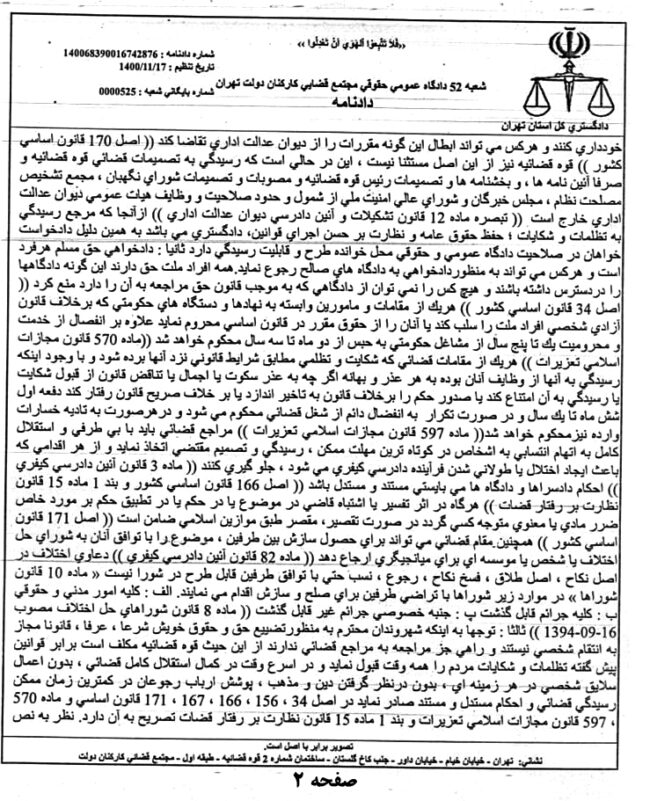 «فَلاَ تَتَّبِعُوا الْهَوَي أَنْ تَعْدِلُوا»
شماره دادنامه : 140068390016742876
تاریخ تنظیم : 1400/11/17
شماره بایگاني شعبه : 0000525
شعبه 52 دادگاه عمومي حقوقي مجتمع قضايي کارکنان دولت تهران
دادنامه
دادگستري کل استان تهران
خودداري کنند و هرکس مي تواند ابطال اين گونه مقررات را از ديوان عدالت اداري تقاضا کند (( اصل 170 قانون اساسي
کشور )) قوه قضائيه نيز از اين اصل مستثنا نيست ، اين در حالي است که رسيدگي به تصميمات قضائي قوه قضائيه و
صرفا آئين نامه ها ، و بخشنامه ها و تصميمات رئيس قوه قضائيه و مصوبات و تصميمات شوراي نگهبان ، مجمع تشخيص
مصلحت نظام ، مجلس خبرگان و شوراي عالي امنيت ملي از شمول و حدود صلاحيت و وظايف هيات عمومي ديوان عدالت
اداري خارج است (( تبصره ماده 12 قانون تشکيلات و آئين دادرسي ديوان عدالت اداري )) ازآنجا که مرجع رسيدگي
به تظلمات و شکايات ؛ حفظ حقوق عامه و نظارت بر حسن اجراي قوانين، دادگستري مي باشد به همين دليل دادخواست
خواهان در صلاحيت دادگاه عمومي و حقوقي محل خوانده طرح و قابليت رسيدگي دارد ثانيا : دادخواهي حق مسلم هرفرد
است و هرکس مي تواند به منظوردادخواهي به دادگاه هاي صالح رجوع نمايد.همه افراد ملت حق دارند اين گونه دادگاهها
را دردسترس داشته باشند و هيچ کس را نمي توان از دادگاهي که به موجب قانون حق مراجعه به آن را دارد منع کرد ((
اصل 34 قانون اساسي کشور )) هريك از مقامات و مامورين وابسته به نهادها و دستگاه هاي حکومتي که برخلاف قانون
آزادي شخصي افراد ملت را سلب کند يا آنان را از حقوق مقرر در قانون اساسي محروم نمايد علاوه بر انفصال از خدمت
و محروميت يك تا پنج سال از مشاغل حکومتي به حبس از دو ماه تا سه سال محکوم خواهد شد ((ماده 570 قانون مجازات
اسلامي تعزيرات )) هريك از مقامات قضائي که شکايت و تظلمي مطابق شرايط قانوني نزد آنها برده شود و با وجود اينکه
رسيدگي به آنها از وظايف آنان بوده به هر عذر و بهانه اگر چه به عذر سکوت يا اجمال يا تناقض قانون از قبول شکايت
يا رسيدگي به آن امتناع کند يا صدور حکم را برخلاف قانون به تاخير اندازد يا بر خلاف صريح قانون رفتار کند دفعه اول
شش ماه تا يك سال و در صورت تکرار  به انفصال دائم از شغل قضائي محکوم مي شود و درهرصورت به تاديه خسارات
وارده نيزمحکوم خواهد شد(( ماده 597 قانون مجازات اسلامي تعزيرات )) مراجع قضائي بايد با بي طرفي و استقلال
کامل به اتهام انتسابي به اشخاص در کوتاه ترين مهلت ممکن ، رسيدگي و تصميم مقتضي اتخاذ نمايد و از هر اقدامي که
باعث ايجاد اختلال يا طولاني شدن فرآينده دادرسي کيفري مي شود ، جلو گيري کنند (( ماده 3 قانون آئين دادرسي کيفري
)) احکام دادسراها و دادگاه ها مي بايستي مستند و مستدل باشد (( اصل 166 قانون اساسي کشور و بند 1 ماده 15 قانون
نظارت بر رفتار قضات )) هرگاه در اثر تفسير يا اشتباه قاضي در موضوع يا در حکم يا در تطبيق حکم بر مورد خاص
ضرر مادي يا معنوي متوجه کسي گردد در صورت تقصير، مقصر طبق موازين اسلامي ضامن است (( اصل 171 قانون
اساسي کشور )) همچنين.مقام قضائي مي تواند براي حصول سازش بين طرفين ، موضوع.را با توافق آنان به شوراي حل
اختلاف يا شخص يا موسسه اي براي ميانجيگري ارجاع دهد ((ماده 82 قانون آئين دادرسي کيفري)) دعاوي اختلاف در
اصل نکاح ، اصل طلاق ، فسخ نکاح ، رجوع ، نسب حتي با توافق طرفين قابل طرح در شورا نيست « ماده 10 قانون
شوراها » در موارد زير شوراها با تراضي طرفين براي صلح و سازش اقدام مي نمايند. الف : کليه امور مدني و حقوقي
ب : کليه جرائم قابل گذشت پ : جنبه خصوصي جرائم غير قابل گذشت (( ماده 8 قانون شوراهاي حل اختلاف مصوب
16-09-1394 )) ثالثا : توجها به اينکه شهروندان محترم به منظورتضييع حق و حقوق خويش شرعا ، عرفا ، قانونا مجاز
به انتقام شخصي نيستند و راهي جز مراجعه به مراجع قضائي ندارند از اين حيث قوه قضائيه مکلف است برابر قوانين
پيش گفته تظلمات و شکايات مردم را همه وقت قبول نمايد و در اسرع وقت در کمال استقلال کامل قضائي ، بدون اعمال
سلايق شخصي در هر زمينه اي ، بدون درنظر گرفتن دين و مذهب ، پوشش ارباب رجوعان در کمترين زمان ممکن
رسيدگي قضائي و احکام مستدل و مستند صادر نمايد در اصل 34 ، 156 ، 166 ، 167 ، 171 قانون اساسي و ماده 570
، 597 قانون مجازات اسلامي تعزيرات و بند 1 ماده 15 قانون نظارت بر رفتار قضات تصريح به آن دارد. نظر به نص
تصوير برابر با اصل است.
نشاني: تهران - خيابان خيام - خيابان داور - جنب کاخ گلستان - ساختمان شماره 2 قوه قضائيه - طبقه اول - مجتمع قضائي کارکنان دولت
صفحه ۲